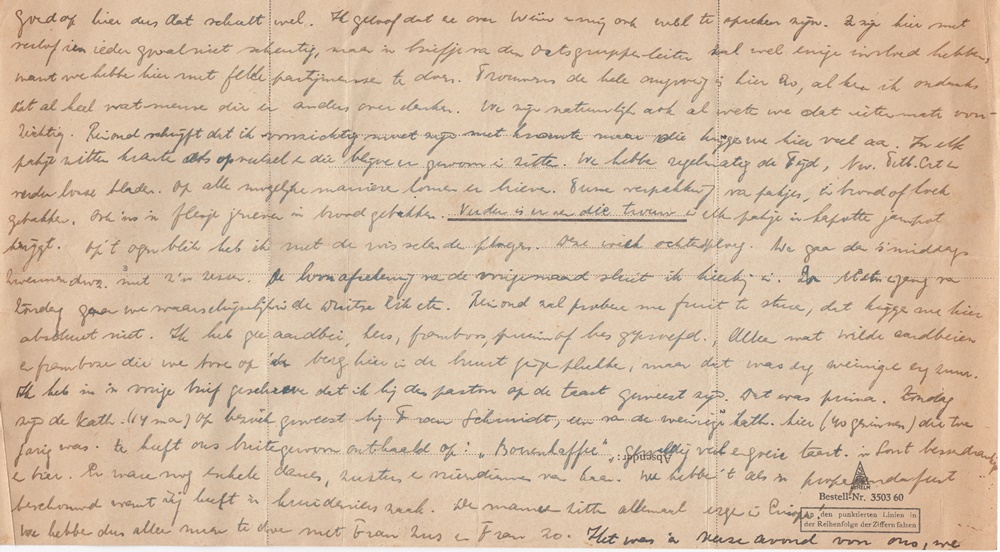 goed op hier dus dat scheelt veel. Ik geloof dat ze over Wim en mij ook wel te spreken zijn. Ze zijn hier met
verlof in ieder geval niet scheutig, maar in briefje van den Ortsgruppenleiter zal wel enige invloed hebben,
want we hebben hier met felle partijmensen te doen. Trouwens de hele omgeving is hier zo, al ken ik ondanks
dat al heel wat mensen die er anders over denken. We zijn natuurlijk ook al weten we dat uitermate voor-
zichtig. Reinond schrijft dat ik voorzichtig moet zijn met kranten maar die krijgen we hier veel aan. In elk
pakje zitten kranten als opvulsel en die blijven er gewoon in zitten. We hebben regelmatig de Tijd, Nw. Tilb. Crt en
verder losse bladen. Op alle mogelijke manieren komen er brieven. Tussen verpakking van pakjes, in brood of koek
gebakken. Ook ins in flesje jenever in brood gebakken. Verder is er een die trouw in elk pakje in kapotte jampot
krijgt. Op 't ogenblik heb ik met de wisselende ploegen. Deze week ochtendploeg. We gaan dan 's middags
zwemmen dwz. met z'n zessen. De loonafrekening van de vorige maand sluit ik hierbij in.
Zondag gaan we waarschijnlijk in de
absoluut niet. Ik heb geen aardbei, kers, framboos, pruim of bes geproefd. Alleen wat wilde aardbeien
en frambozen die we boven op den berg hier in de buurt gingen plukken, maar dat was erg weinig en zuur.
Ik heb in in vorige brief geschreven dat ik bij den pastoor op de taart geweest zijn. Dat was prima. Zondag
zijn de kath. (14 man) op bezoek geweest bij Frau Schmidt, een van de weinige kath. hier (40 gezinnen) die toen
jarig was. Ze heeft ons buitengewoon onthaald op: "Bonenkaffee" geweldig veel en groote taart.
en bier. Er waren nog enkele dames, zusters en vriendinnen van haar. We hebben 't als in propagandafuist
beschouwd want zij heeft in kruideniers zaak. De mannen zitten allemaal ergens in Europa.
We hebben dus alleen maar te doen met Frau Zus en Frau Zo. Het was in reuze avond voor ons, we
Absender:
Bestell-Nr. 3503 60
An den punktierten Linien in
der Reihenfolge der Ziffern falten